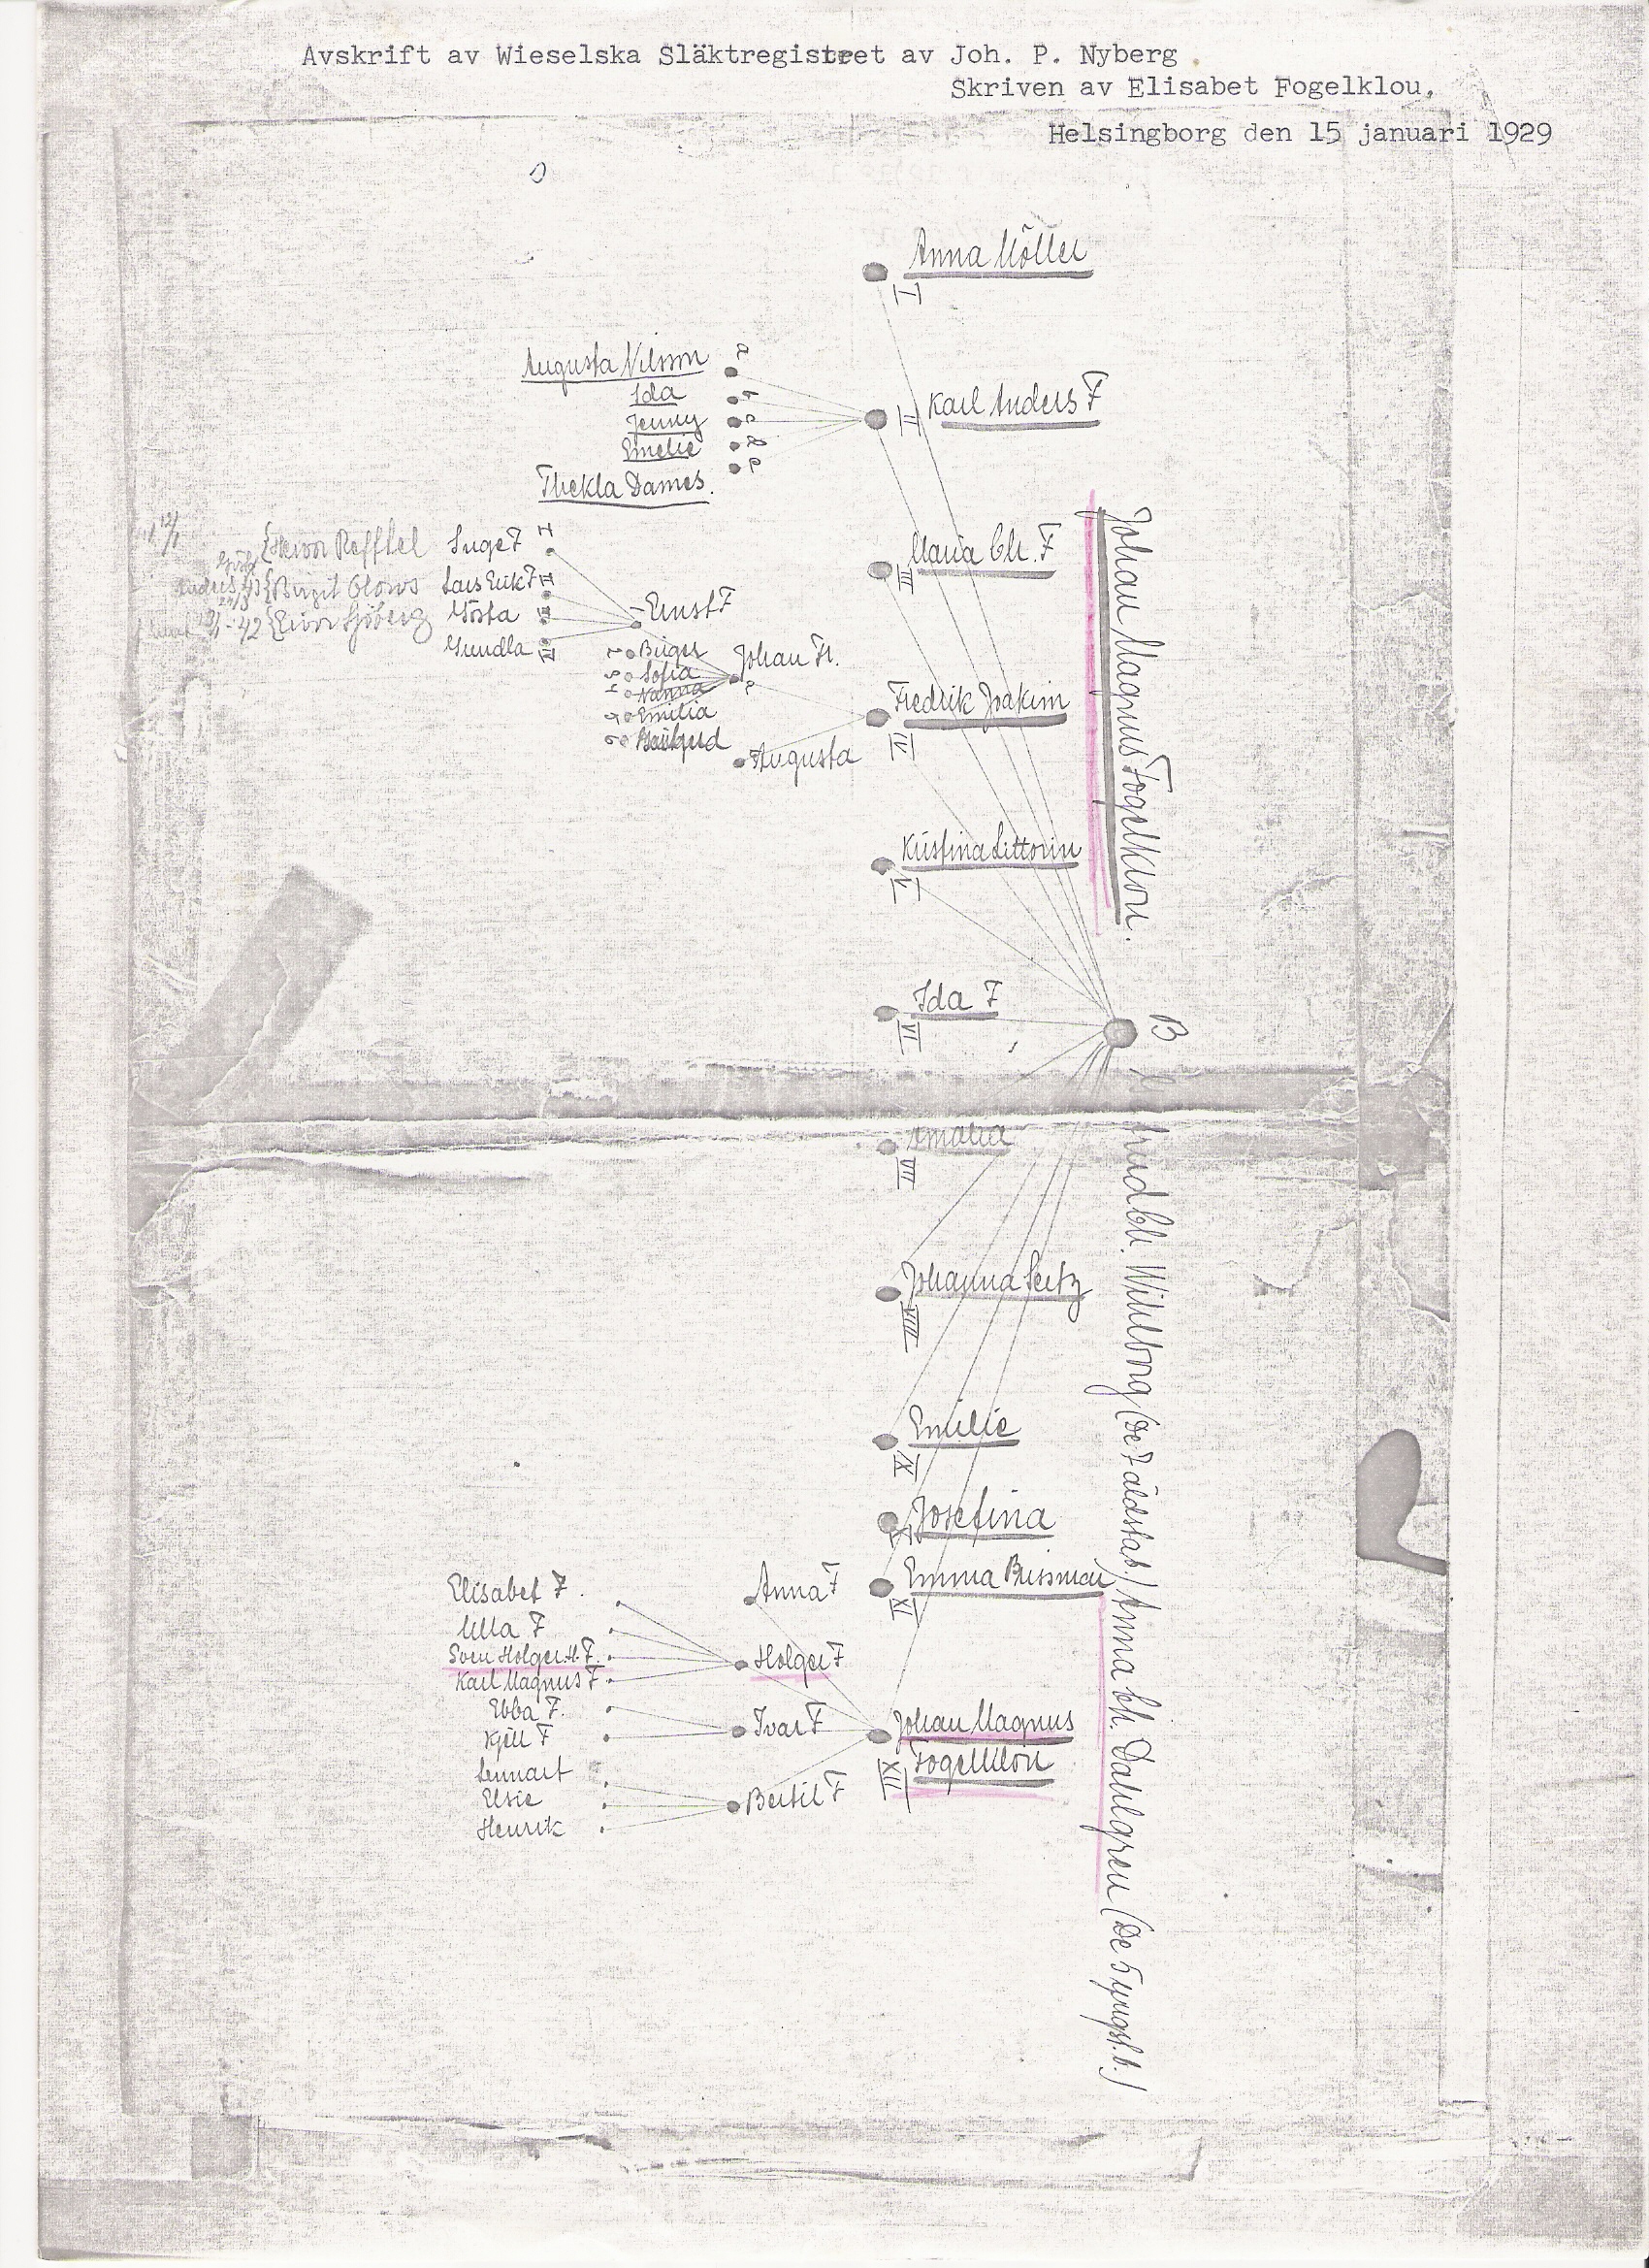 Avskrift av Wieselska Släktregistret av Joh. P. Nyberg.
Skriven av Elisabet Fogelklou,
Helsingborg den 15 januari 1929
Anna Möller
I
Augusta Nilsson a
Ida b
Jenny c
Emelie d
Thekla Dames. e
Karl Anders F
II
Maria Ch. F
III
Inge F I
Lars Erik F II
Gösta III
Gundla IV
Birgit
Sjöberg
Ernst F
Birger
Sofia
Nanna
Emilia
Johan Fr.
Augusta
Fredrik Joakim
IV
Kristina Littorin
V
Ida F
VI
Johan Magnus Fogelklou.
B
Amalia
VII
Johanna Seitz
VIII
Emilie
IX
Josefina
X
Emma Bussman
XI
Johan Magnus
Fogelklou
XII
Anna F
Holger F
Ivar F
Bertil F
Elisabet F.
Ulla F
Sven Holger H. F.
Karl Magnus F.
Ebba F.
Kjell F
Lennart
Elsie
Henrik
Ch. Wihlborg (De 7 äldsta b.) Anna Ch. Dahlgren (De 5 yngst. b.)